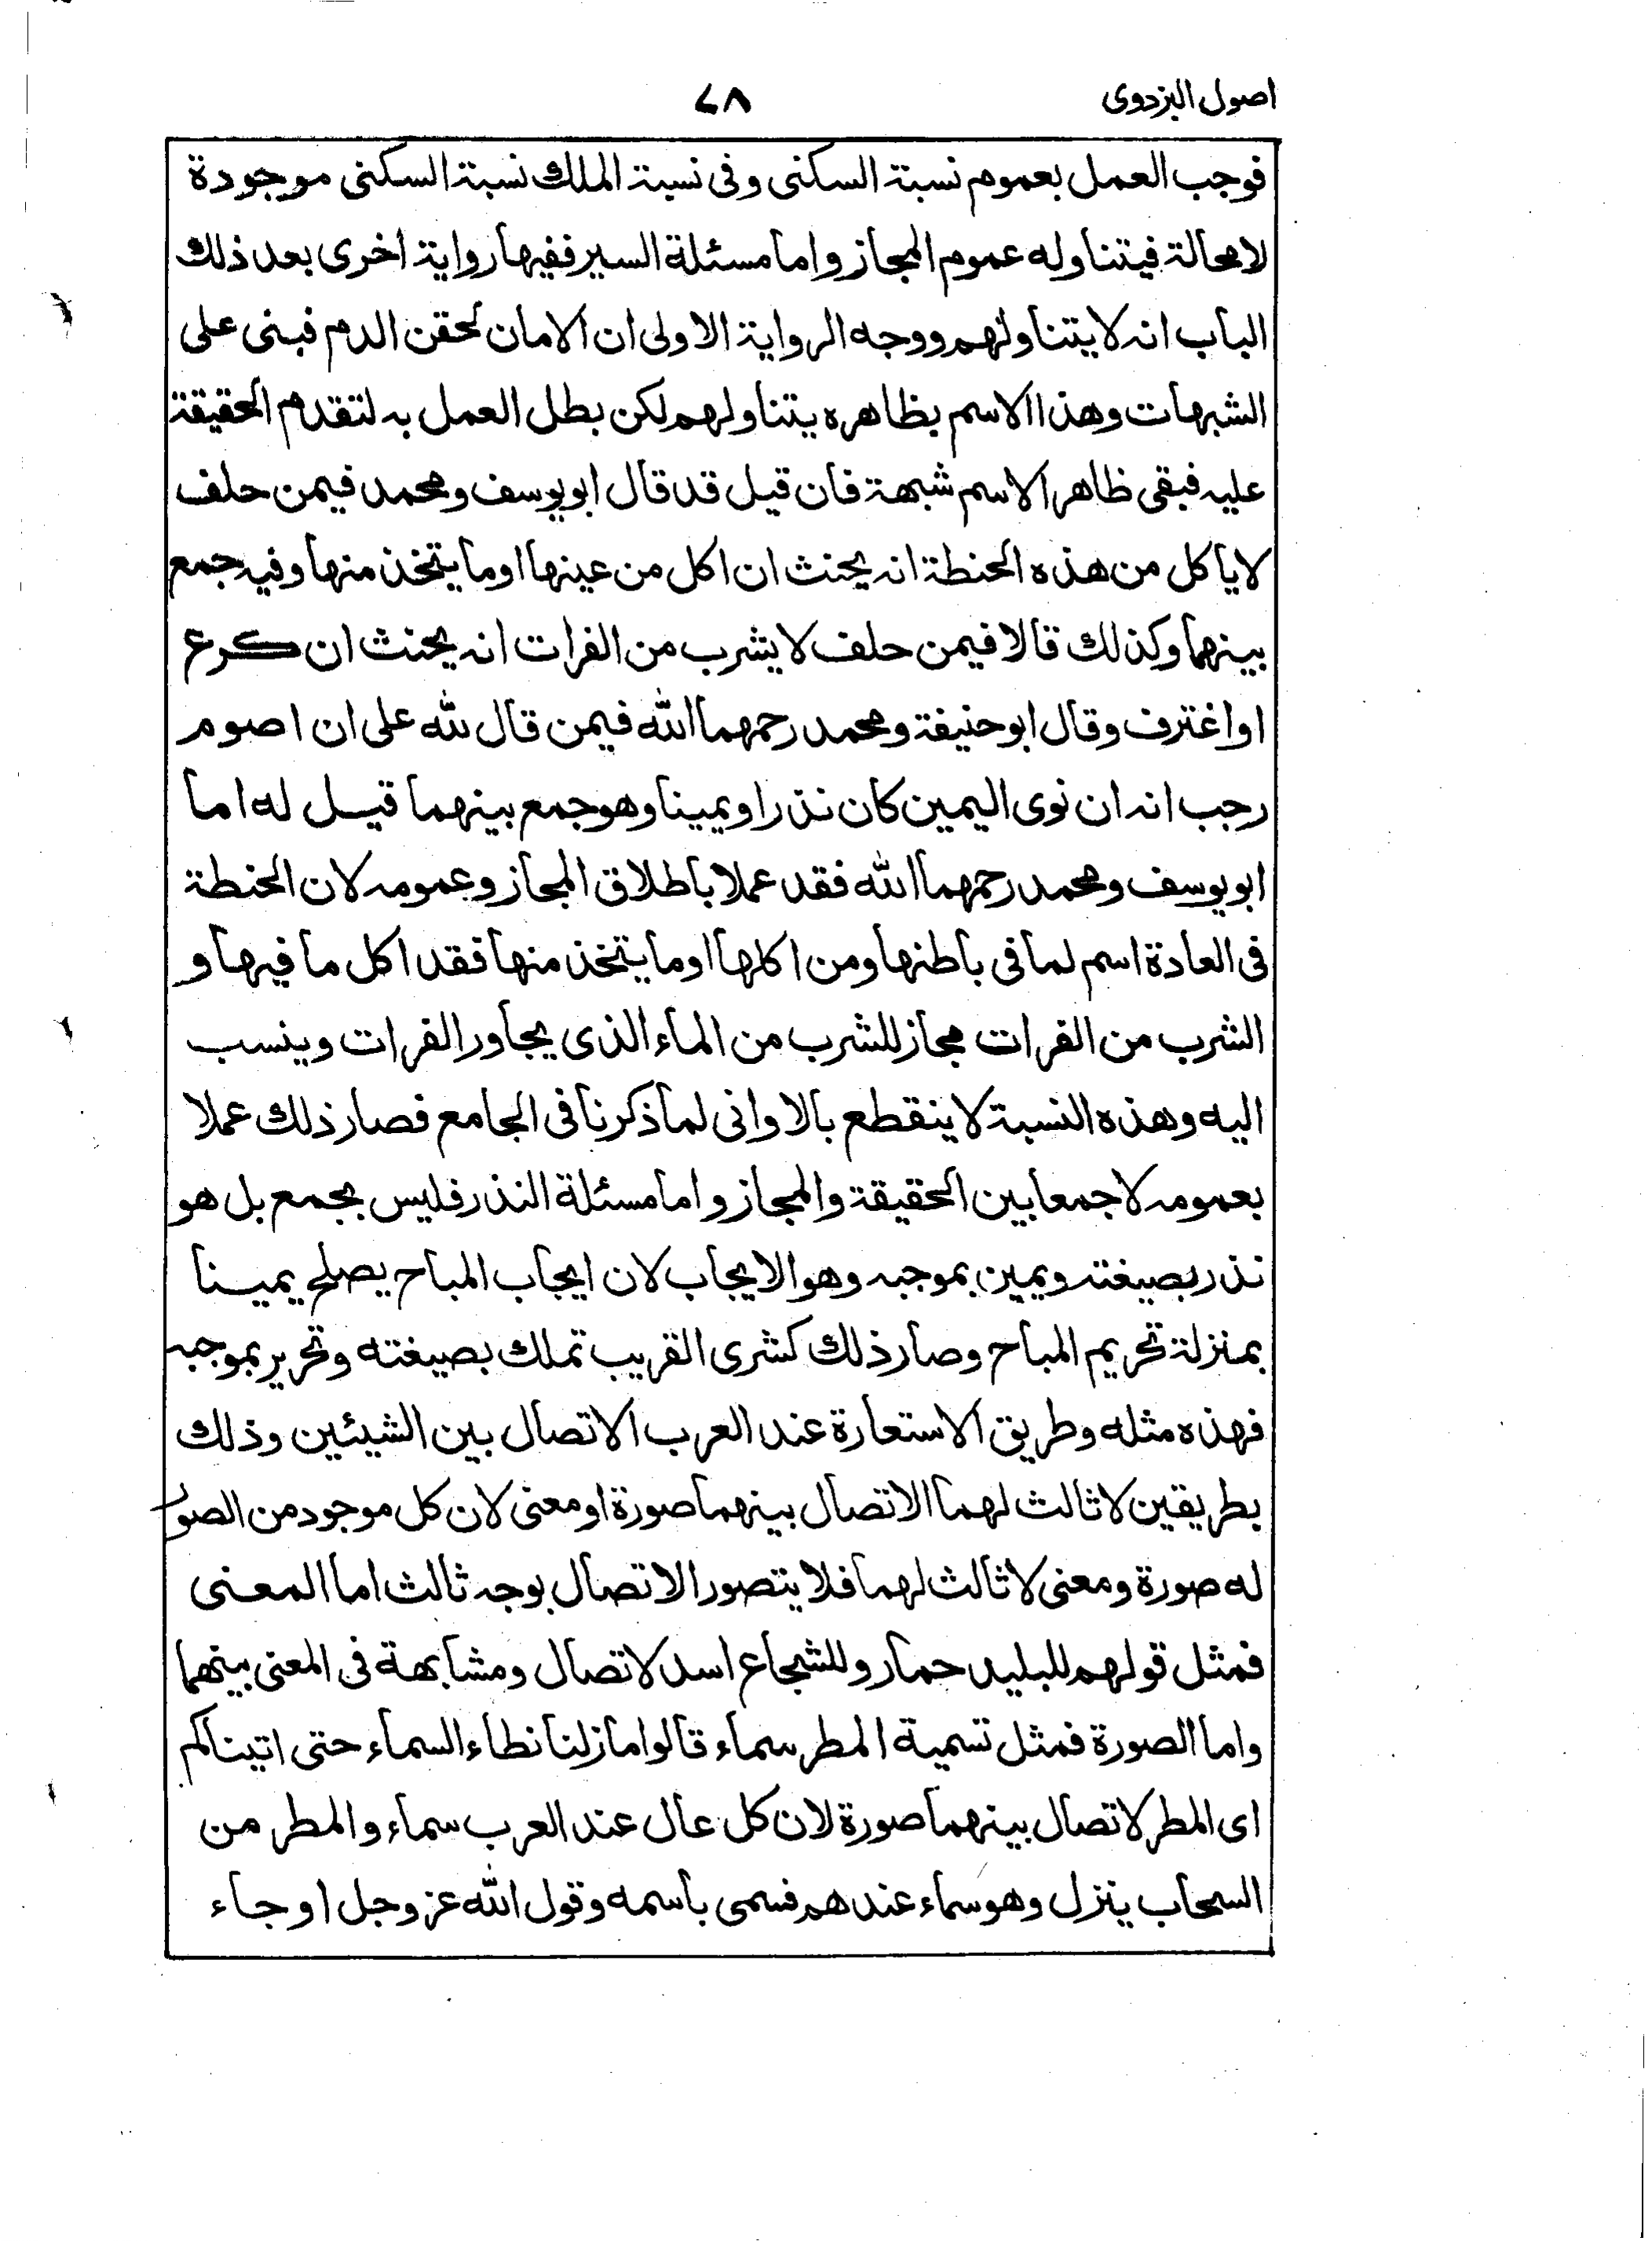 اصول البزدوى ٧٨
فوجب العمل بعموم نسبة السكنى وفى نسبة الملك نسبة السكنى موجودة
لامحالة فيتناوله عموم المجاز واما مسئلة السير ففيها رواية اخرى بعد ذلك
الباب انه لا يتناولهم ووجه الرواية الاولى ان الامان لحقن الدم فبنى على
الشبهات وهذا الاسم بظاهره يتناولهم لكن بطل العمل به لتقدم الحقيقة
عليه فبقى ظاهر الاسم شبهة فان قيل قد قال ابويوسف ومحمد فيمن حلف
لاياكل من هذه الحنطة انه يحنث ان اكل من عينها او ما يتخذ منها وفيه جمع
بينهما وكذلك قالا فيمن حلف لا يشرب من الفرات انه يحنث ان كرع
او اغترف وقال ابوحنيفة ومحمد رحمهما الله فيمن قال لله على ان اصوم
رجب انه ان نوى اليمين كان نذرا ويمينا وهو جمع بينهما قيل له اما
ابويوسف ومحمد رحمهما الله فقد عملا باطلاق المجاز وعمومه لان الحنطة
فى العادة اسم لما فى باطنها ومن اكلها او ما يتخذ منها فقد اكل ما فيها و
الشرب من الفرات مجاز للشرب من الماء الذى يجاور الفرات وينسب
اليه وهذه النسبة لا ينقطع بالاوانى لما ذكرنا فى الجامع فصار ذلك عملا
بعمومه لا جمعا بين الحقيقة والمجاز واما مسئلة النذر فليس بجمع بل هو
نذر بصيغته ويمين بموجبه وهو الايجاب لان ايجاب المباح يصلح يمينا
بمنزلة تحريم المباح وصار ذلك كشرى القريب تملك بصيغته وتحرير بموجبه
فهذه مثله وطريق الاستعارة عند العرب الاتصال بين الشيئين وذلك
بطريقين لا ثالث لهما الاتصال بينهما صورة او معنى لان كل موجود من الصور
له صورة ومعنى لا ثالث لهما فلا يتصور الاتصال بوجه ثالث اما المعنى
فمثل قولهم للبليد حمار وللشجاع اسد لاتصال ومشابهة فى المعنى بينهما
واما الصورة فمثل تسمية المطر سماء قالوا مازلنا نطاء السماء حتى اتيناكم
اى المطر لاتصال بينهما صورة لان كل عال عند العرب سماء والمطر من
السحاب ينزل وهو سماء عندهم فسمى باسمه وقول الله عز وجل اوجاء